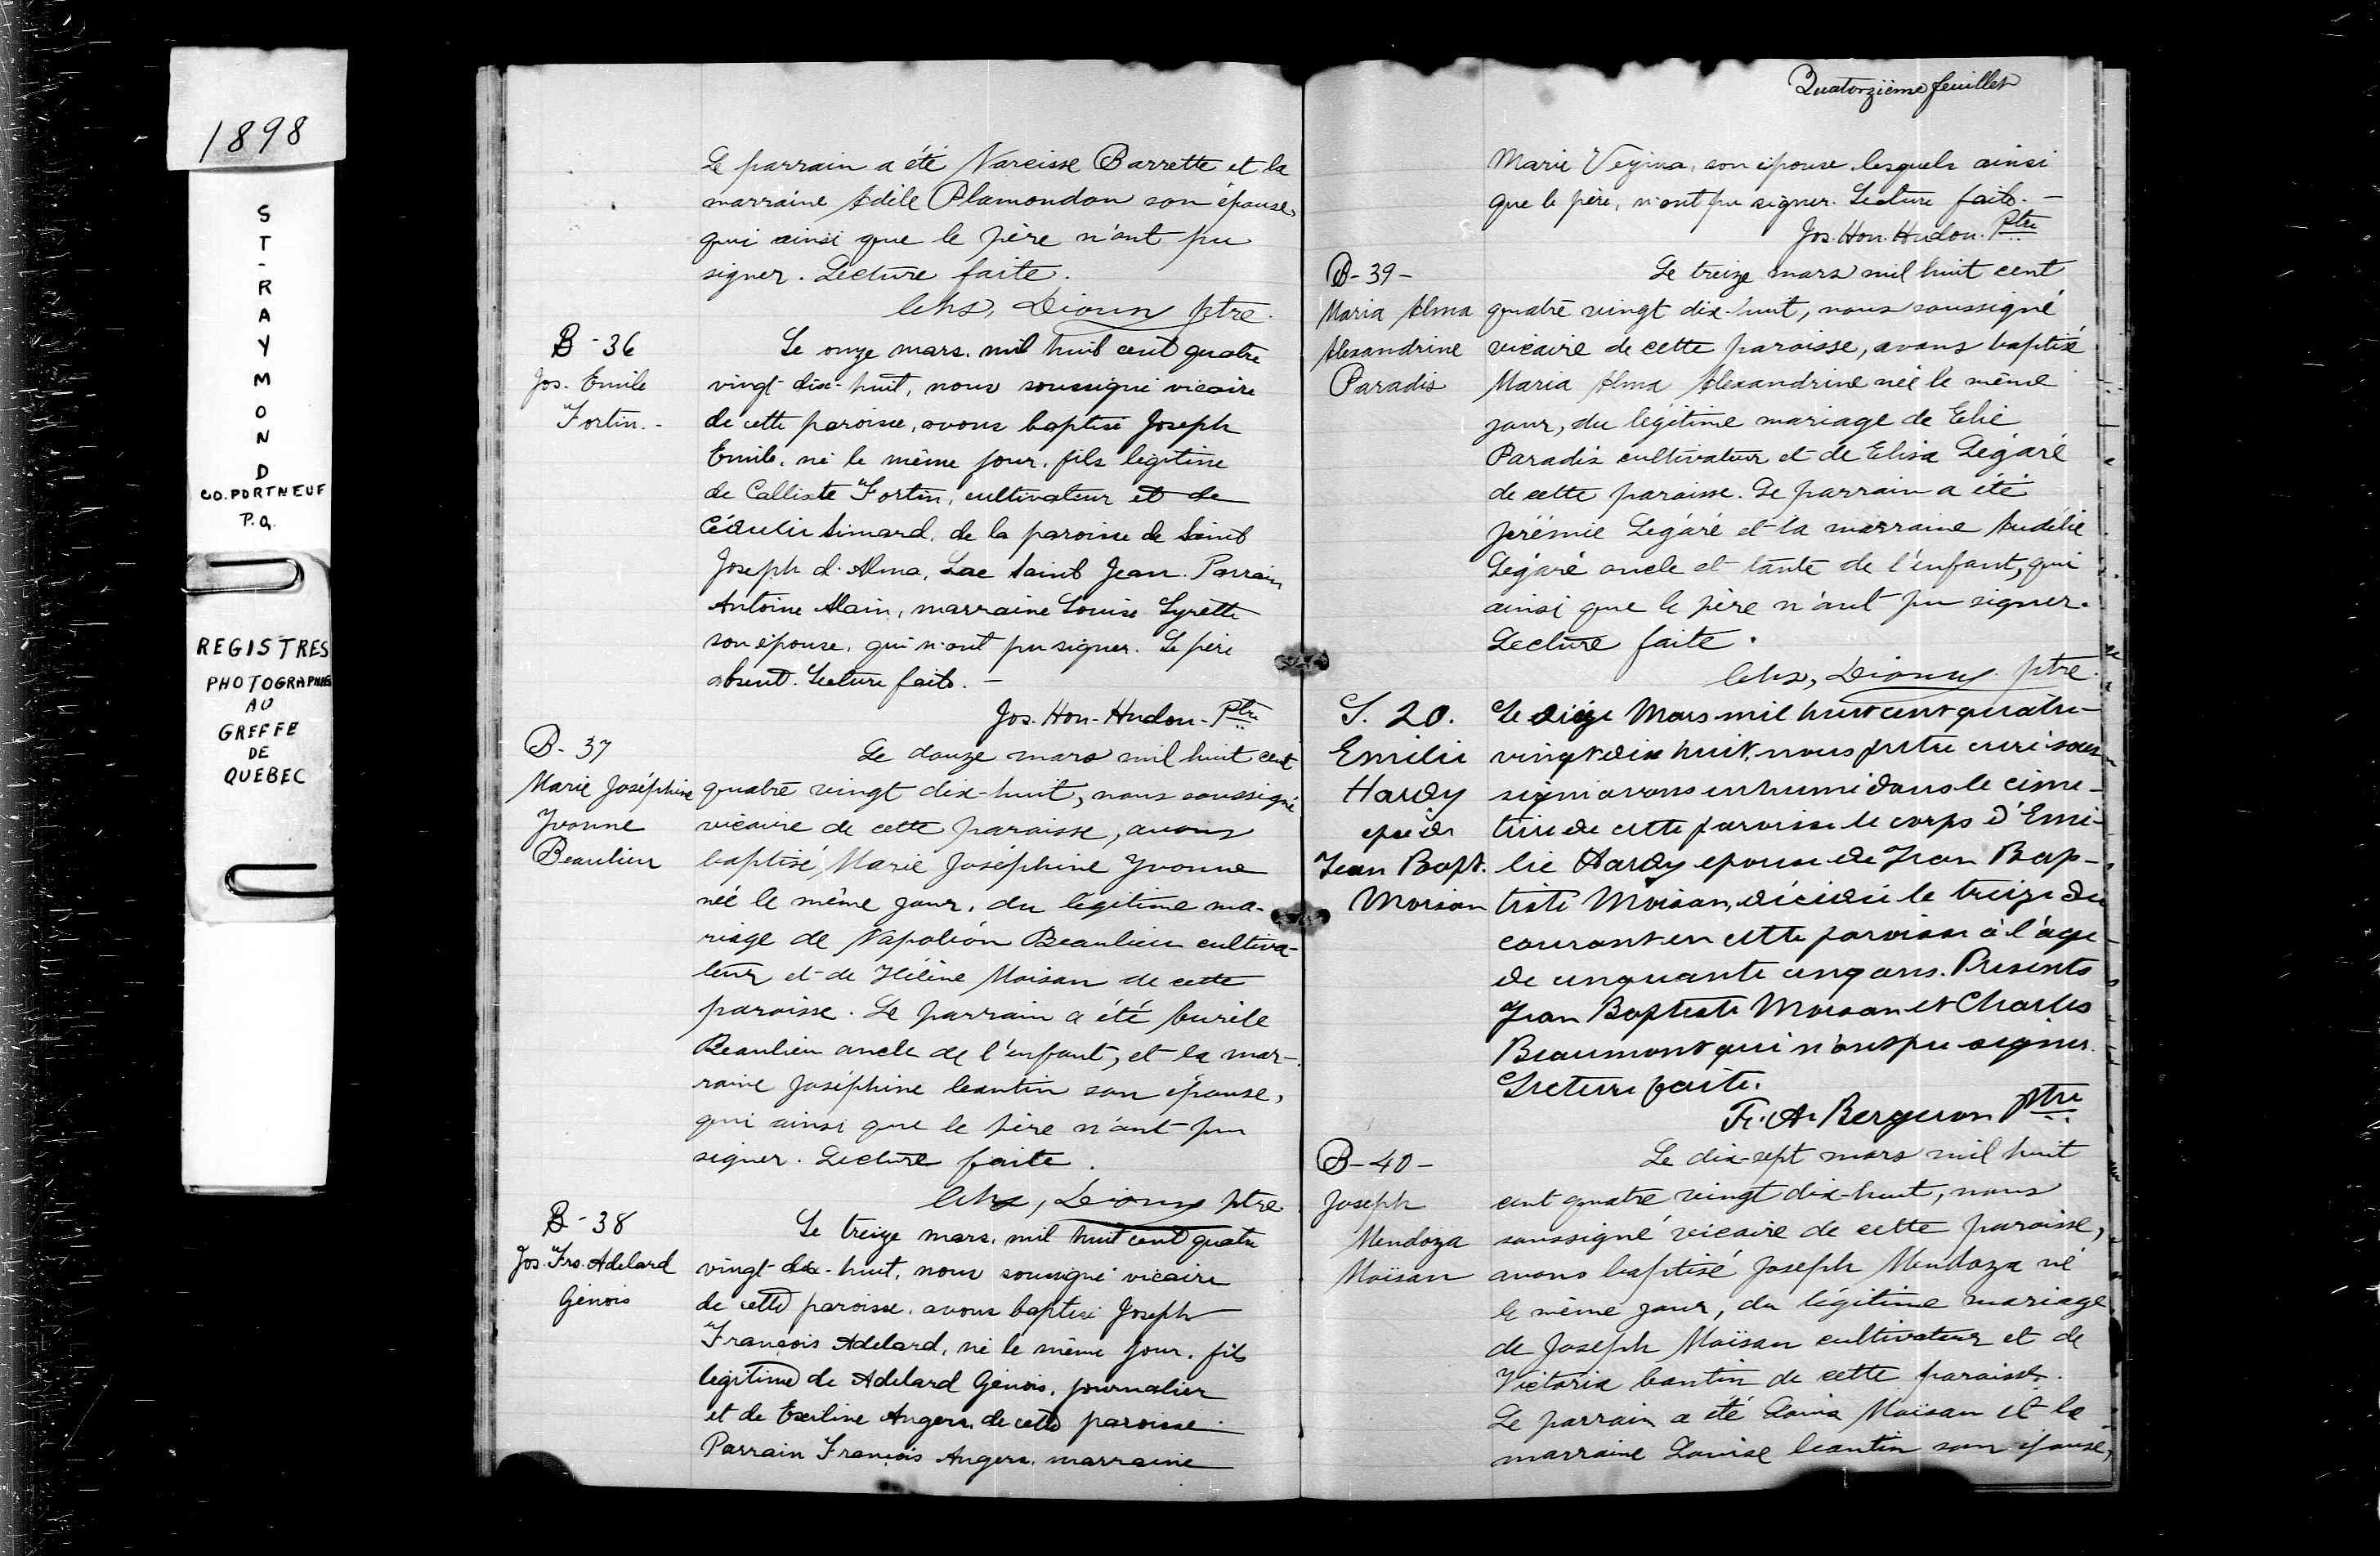 1898
ST-RAYMOND
CO. PORTNEUF
P.Q.
REGISTRES
PHOTOGRAPHIES
AU
GREFFE
DE
QUEBEC
Le parrain a été Narcisse Barrette et la
marraine Adèle Plamondon son épouse,
qui ainsi que le père n'ont pu
signer. Lecture faite.
Chs, Dionne ptre.
B-36
Jos. Emile
Fortin.-
Le onze mars, mil huit cent quatre
vingt-dix-huit, nous soussigné vicaire
de cette paroisse, avons baptisé Joseph
Emile, né le même jour, fils légitime
de Calliste Fortin, cultivateur et de
Cédulie Simard, de la paroisse de Saint
Joseph d'Alma, Lac Saint Jean. Parrain
Antoine Alain, marraine Louise Lyrette
son épouse, qui n'ont pu signer. Le père
absent. Lecture faite.-
Jos-Hon-Hudon-Ptre
B-37
Marie Joséphine
Yvonne
Beaulieu
Le douze mars mil huit cent
quatre vingt dix-huit, nous soussigné
vicaire de cette paroisse, avons
baptisé Marie Joséphine Yvonne
née le même jour, du légitime ma-
riage de Napoléon Beaulieu cultiva-
teur et de Hélène Moisan de cette
paroisse. Le parrain a été
Beaulieu oncle de l'enfant, et la mar-
raine Joséphine Cantin son épouse,
qui ainsi que le père n'ont pu
signer. Lecture faite.
Chs, Dionne ptre
B-38
Jos. Frs. Adelard
Génois
Le treize mars, mil huit cent quatre
vingt-dix-huit, nous soussigné vicaire
de cette paroisse, avons baptisé Joseph
François Adelard, né le même jour, fils
légitime de Adelard Génois, journalier
et de Exiline Angers, de cette paroisse.
Parrain François Angers, marraine
Quatorzième feuillet
Marie Vézina, son épouse lesquels ainsi
que le père, n'ont pu signer. Lecture faite.-
Jos. Hon. Hudon. Ptre
B-39-
Maria Alma
Alexandrine
Paradis
Le treize mars mil huit cent
quatre vingt dix-huit, nous soussigné
vicaire de cette paroisse, avons baptisé
Maria Alma Alexandrine née le même
jour, du légitime mariage de Elie
Paradis cultivateur et de Elisa Légaré
de cette paroisse. Le parrain a été
Jérémie Légaré et la marraine Audélie
Légaré oncle et tante de l'enfant, qui
ainsi que le père n'ont pu signer.
Lecture faite.
Chs, Dionne ptre.
S. 20.
Emilie
Hardy
épse de
Jean Bapt.
Moisan
Le seize Mars mil huit cent quatre-
vingt dix huit, nous prêtre curé sous-
signé avons inhumé dans le cime-
tière de cette paroisse le corps d'Emi-
lie Hardy épouse de Jean Bap-
tiste Moisan, décédée le treize du
courant en cette paroisse à l'âge
de cinquante cinq ans. Présents
Jean Baptiste Moisan et Charles
Beaumont qui n'ont pu signer.
Lecture faite.
F. A. Bergeron Ptre
B-40-
Joseph
Mendoza
Moïsan
Le dix-sept mars mil huit
cent quatre vingt dix-huit, nous
soussigné vicaire de cette paroisse,
avons baptisé Joseph Mendoza né
le même jour, du légitime mariage
de Joseph Moïsan cultivateur et de
Victoria Cantin de cette paroisse.
Le parrain a été Louis Moïsan et la
marraine Louise Cantin son épouse,